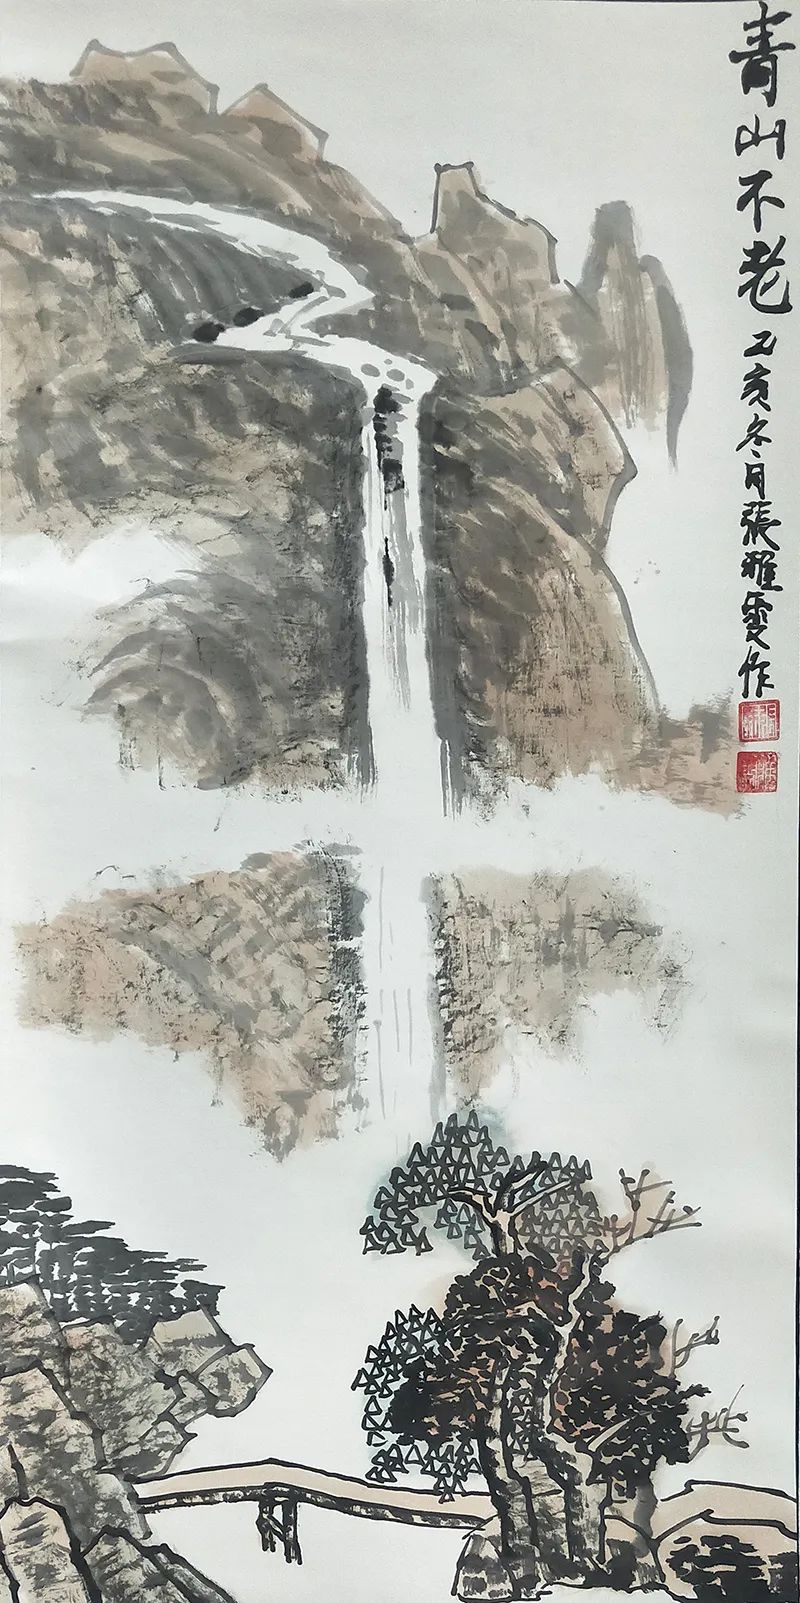 青山不老
乙亥冬月張雅雯作